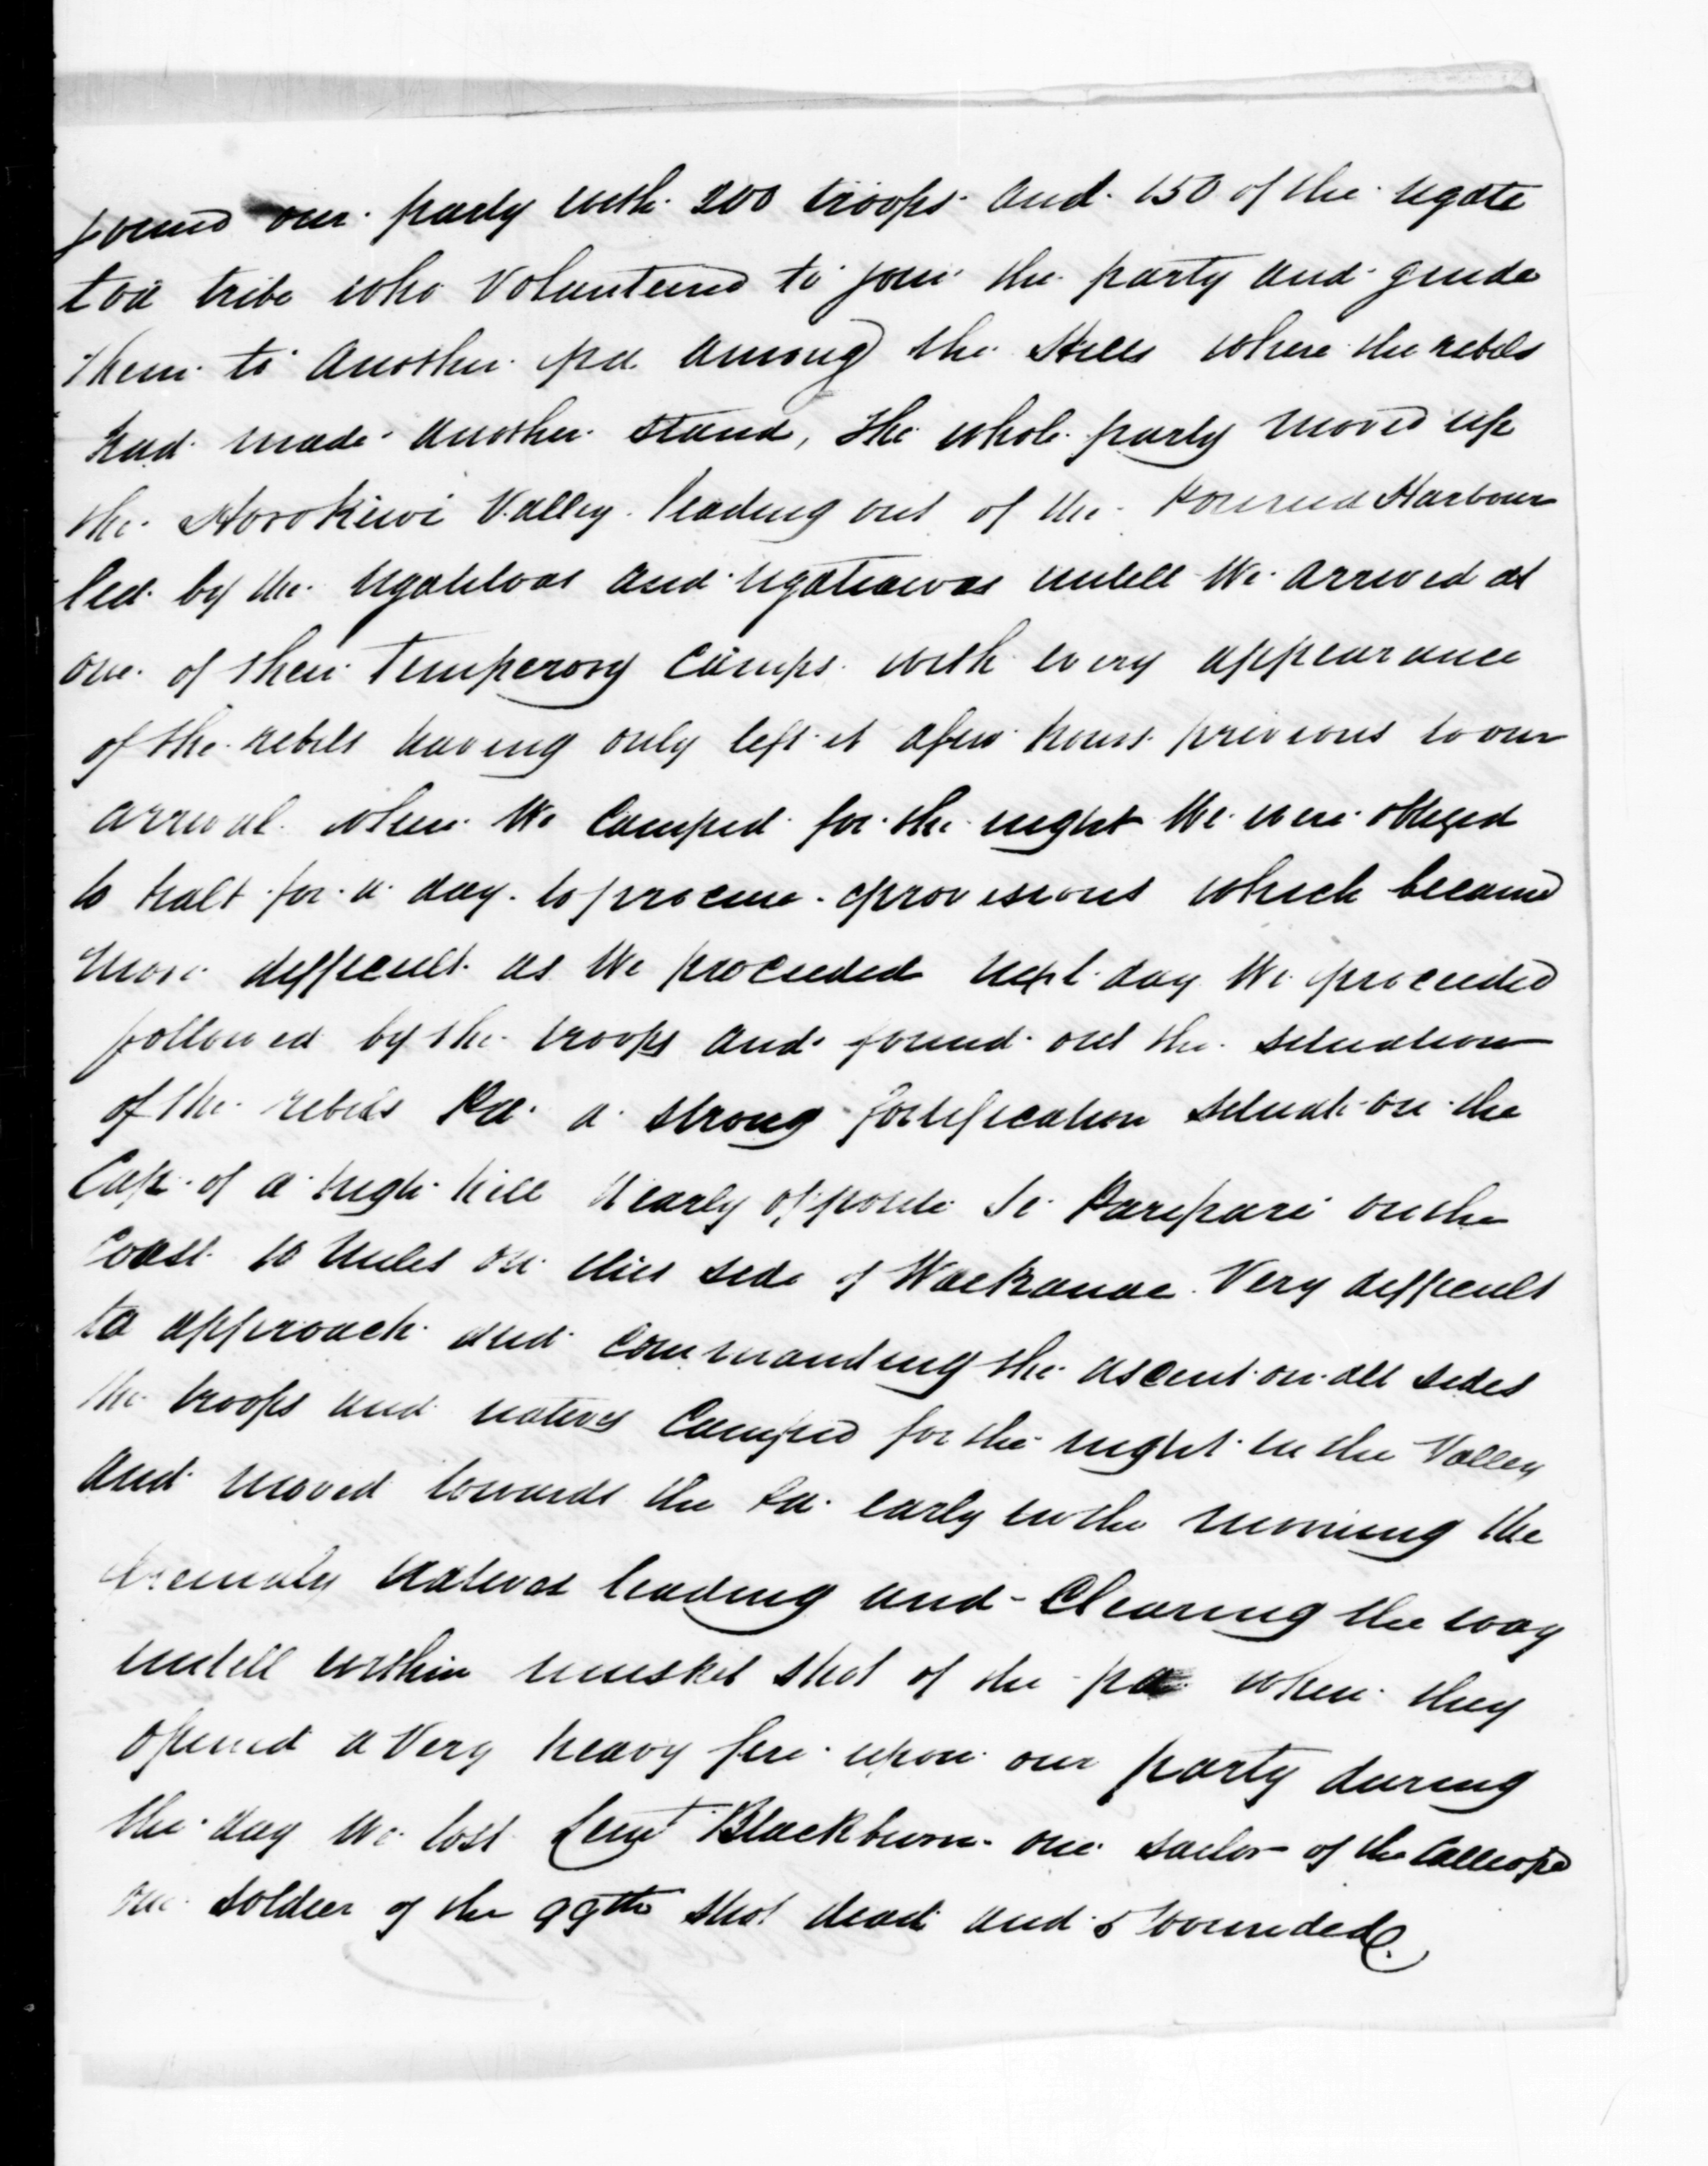 joined our party with 200 troops and 150 of the Ngate
toa tribe who Volunteered to join the party and guide
them to Another pa among the Hills where the rebels
had made another stand, the whole party moved up
the Horokiwi Valley leading out of the Porirua Harbour
led by the Ngatitoas and Ngatiawas untill We arrived at
one of their Temperory Camps with every appearance
of the rebels having only left it afew hours previous to our
arrival when We Camped for the night We were obliged
to halt for a day to procure provisions which became
more difficult as We proceeded Next day We proceeded
followed by the troops and found out the situation
of the rebels Pa a strong fortification situate on the
Cap of a high hill Nearly opposite Te Paripari on the
Coast 10 Miles on this side of Waekanae Very difficult
to approach and commanding the ascent on all sides
the troops and natives Camped for the night in the Valley
and moved towards the Pa early in the morning the
natives leading and Clearing the way
untill within musket shot of the pa when they
opened a Very heavy fire upon our party during
the day We lost Leut Blackburn one sailor of the Calliope
one soldier of the 99th shot dead and 5 Wounded